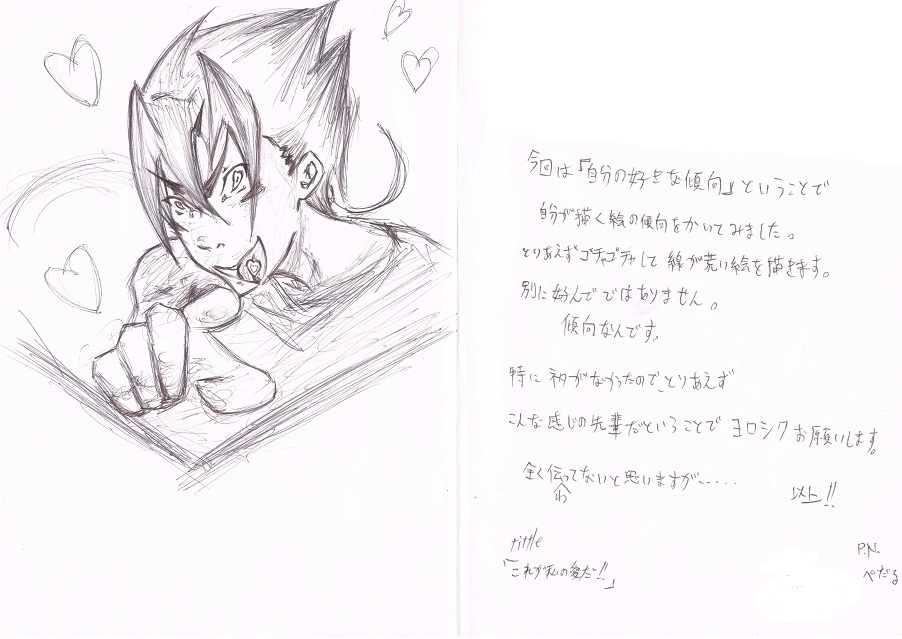 今回は『自分の好きな傾向』ということで
自分が描く絵の傾向をかいてみました。
とりあえずゴチャゴチャして線が荒い絵を描きます。
別に好んでではありません。
傾向なんです。
特にネタがなかったのでとりあえず
こんな感じの先輩だということでヨロシクお願いします。
全く伝わってないと思いますが……
以上!!
tittle
「これが私の愛だ!!」
P.N.
ぺだる